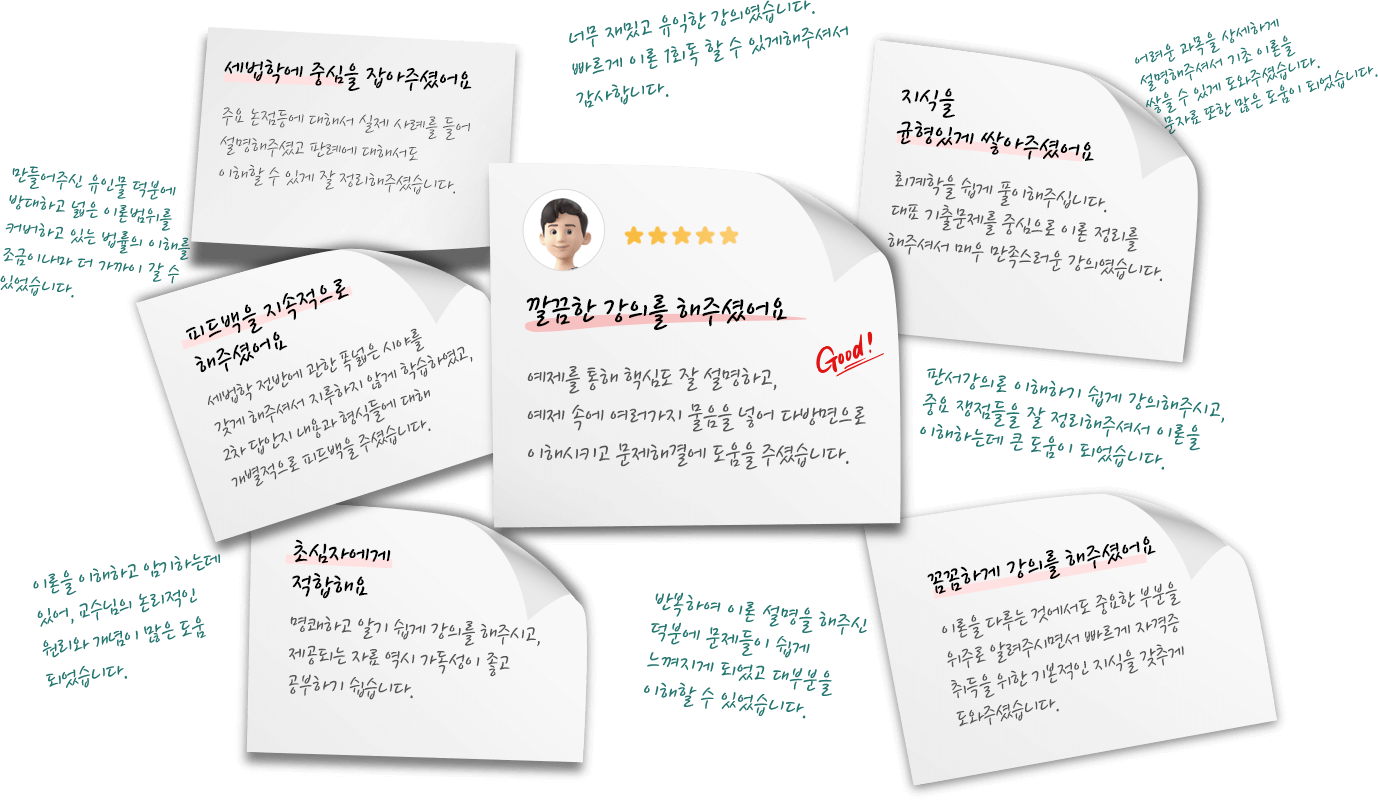 너무 재밌고 유익한 강의였습니다.
빠르게 이론 1회독 할 수 있게해주셔서
감사합니다.
세법학에 중심을 잡아주셨어요
주요 논점등에 대해서 실제 사례를 들어
설명해주셨고 판례에 대해서도
이해할 수 있게 잘 정리해주셨습니다.
지식을
균형있게 쌓아주셨어요
회계학을 쉽게 풀이해주십니다.
대표 기출문제를 중심으로 이론 정리를
해주셔서 매우 만족스러운 강의였습니다.
어려운 과목을 상세하게
설명해주셔서 기초 이론을
쌓을 수 있게 도와주셨습니다.
문자료 또한 많은 도움이 되었습니다.
만들어주신 유인물 덕분에
방대하고 넓은 이론범위를
커버하고 있는 법률의 이해를
조금이나마 더 가까이 갈 수
있었습니다.
깔끔한 강의를 해주셨어요
Good!
예제를 통해 핵심도 잘 설명하고,
예제 속에 여러가지 물음을 넣어 다방면으로
이해시키고 문제해결에 도움을 주셨습니다.
피드백을 지속적으로
해주셨어요
세법학 전반에 관한 폭넓은 시야를
갖게 해주셔서 지루하지 않게 학습하였고,
2차 답안지 내용과 형식들에 대해
개별적으로 피드백을 주셨습니다.
판서강의로 이해하기 쉽게 강의해주시고,
중요 쟁점들을 잘 정리해주셔서 이론을
이해하는데 큰 도움이 되었습니다.
초심자에게
적합해요
명쾌하고 알기 쉽게 강의를 해주시고,
제공되는 자료 역시 가독성이 좋고
공부하기 쉽습니다.
꼼꼼하게 강의를 해주셨어요
이론을 다루는 것에서도 중요한 부분을
위주로 알려주시면서 빠르게 자격증
취득을 위한 기본적인 지식을 갖추게
도와주셨습니다.
이론을 이해하고 암기하는데
있어, 교수님의 논리적인
원리와 개념이 많은 도움
되었습니다.
반복하여 이론 설명을 해주신
덕분에 문제들이 쉽게
느껴지게 되었고 대부분을
이해할 수 있었습니다.